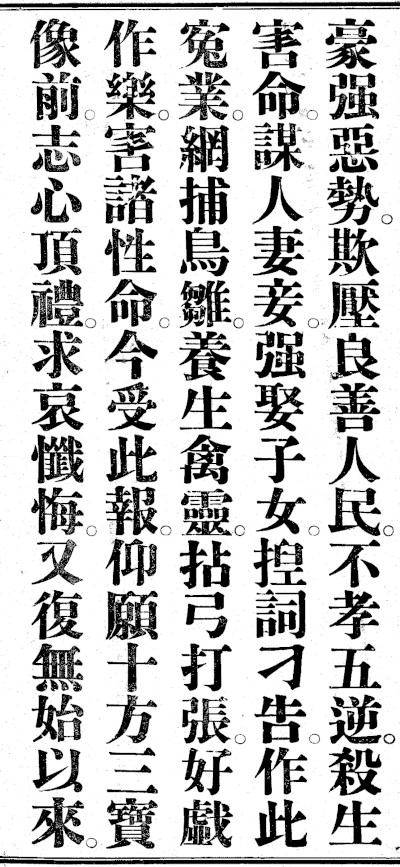 豪强惡勢。欺壓良善人民。不孝五逆。殺生
害命。謀人妻妾。强娶子女。揑詞刁告。作此
寃業。網捕鳥雛。養生禽靈。拈弓打張。好戱
作樂。害諸性命。今受此報。仰願十方三寶
像前。志心頂禮。求哀懺悔。又復無始以來。